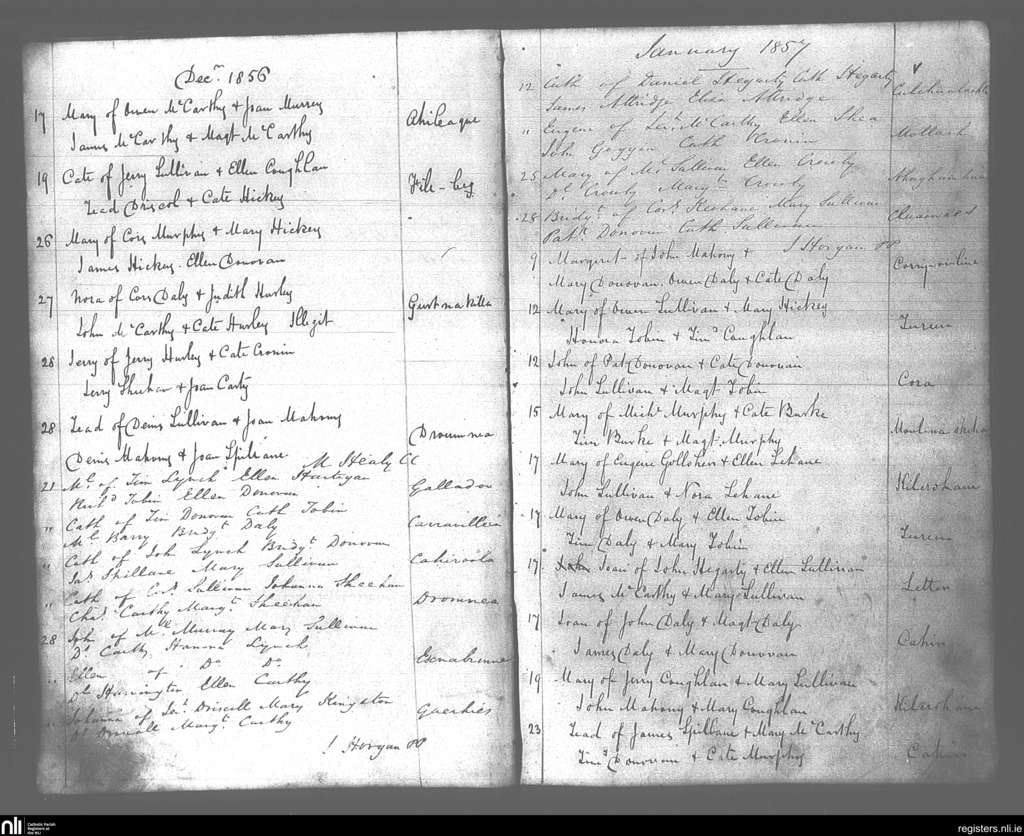 Decr. 1856
17 Mary of Owen McCarthy & Joan Murrey Ahileague
James McCarthy & Magt McCarthy
19 Cate of Jerry Sullivan & Ellen Coughlan Kile-beg
Tead Driscol & Cate Hickey
26 Mary of Cors Murphy & Mary Hickey
James Hickey. Ellen Donovan
27 Nora of Cors Daly & Judith Hurley Gurtnakilla
John McCarthy & Cate Hurley Illegit
28 Jerry of Jerry Hurley & Cate Cronin
Jerry Shehan & Joan Carty
28 Tead of Denis Sullivan & Joan Mahony Droumnea
Denis Mahony & Joan Spillane
M Healy CC
21 Ml. of Tim Lynch Ellen Hartigan Galladoo
Richd Tobin Ellen Donovan
" Cath of Tim Donovan Cath Tobin
Ml Barry Bridgt Daly
" Cath of John Lynch Bridgt Donovan
Jas Spillane Mary Sullivan
" Cath of Cors Sullivan Johanna Sheehan Dromnea
Chas Carthy Margt Sheehan
28 John of Ml. Murray Mary Sullivan
Ds. Carthy Hanora Lynch
" Ellen of Do Do
Harrington Ellen Carthy
" Johanna of Jer. Driscoll Mary Kington
Driscoll Margt. Carthy
J Horgan PP
January 1857
12 Cath of Daniel Hegarty Cath Hegarty
James Attridge Eliza Attridge
" Eugene of McCarthy Ellen Shea
John Goggin Cath Cronin
25 Mary of Ml. Sullivan Ellen Crowly
Crowly Margt Crowly
28 Bridgt. of Cors. Keohane Mary Sullivan
Patk. Donovan Cath Sullivan
J Horgan PP
9 Margeret of John Mahony &
Mary Donovan. Owen Daly & Cate Daly
12 Mary of Owen Sullivan & Mary Hickey Tureen
Honora Tobin & Timo Coughlan
12 John of Pat Donovan & Cate Donovan Cora
John Sullivan & Magt Tobin
15 Mary of Michl Murphy & Cate Burke
Tim Burke & Magt Murphy
17 Mary of Eugene Golloher & Ellen Lehane Kilerohane
John Sullivan & Nora Lehane
17 Mary of Owen Daly & Ellen Tobin Tureen
Tim Daly & Mary Tobin
17 Joan of John Hegarty & Ellen Sullivan Letter
James McCarthy & Mary Sullivan
17 Joan of John Daly & Magt Daly Cahir
James Daly & Mary Donovan
19 Mary of Jerry Coughlan & Mary Sullivan Kilerohane
John Mahony & Mary Coughlan
23 Tead of James Spillane & Mary McCarthy Cahir
Timo Donovan & Cate Murphy
nli Catholic Parish Registers at the NLI
registers.nli.ie